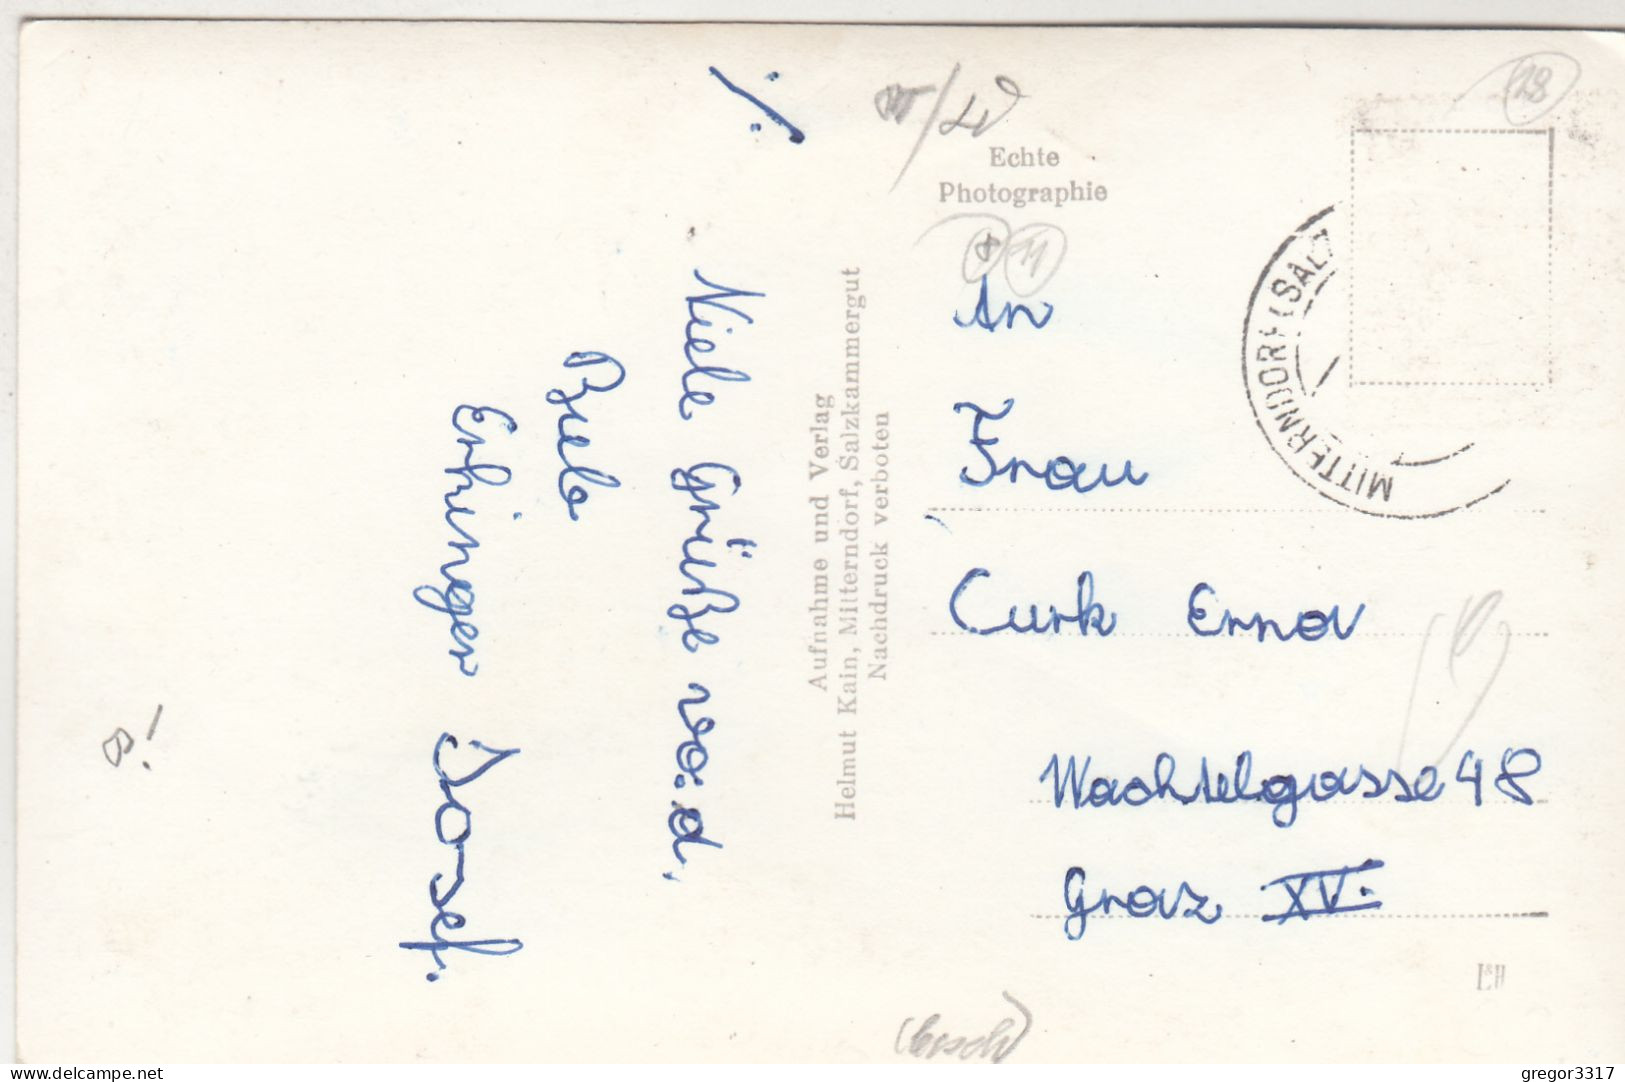 ./.
Viele Grüße v. d.
Bueb
Erhinger Josef.
Aufnahme und Verlag
Helmut Kain, Mitterndorf, Salzkammergut
Nachdruck verboten
Echte
Photographie
18
11
MITTERNDORF (SALZ
An
Frau
Curk Erna
Wachtelgasse 48
Graz XV.
L&H
delcampe.net
gregor3317